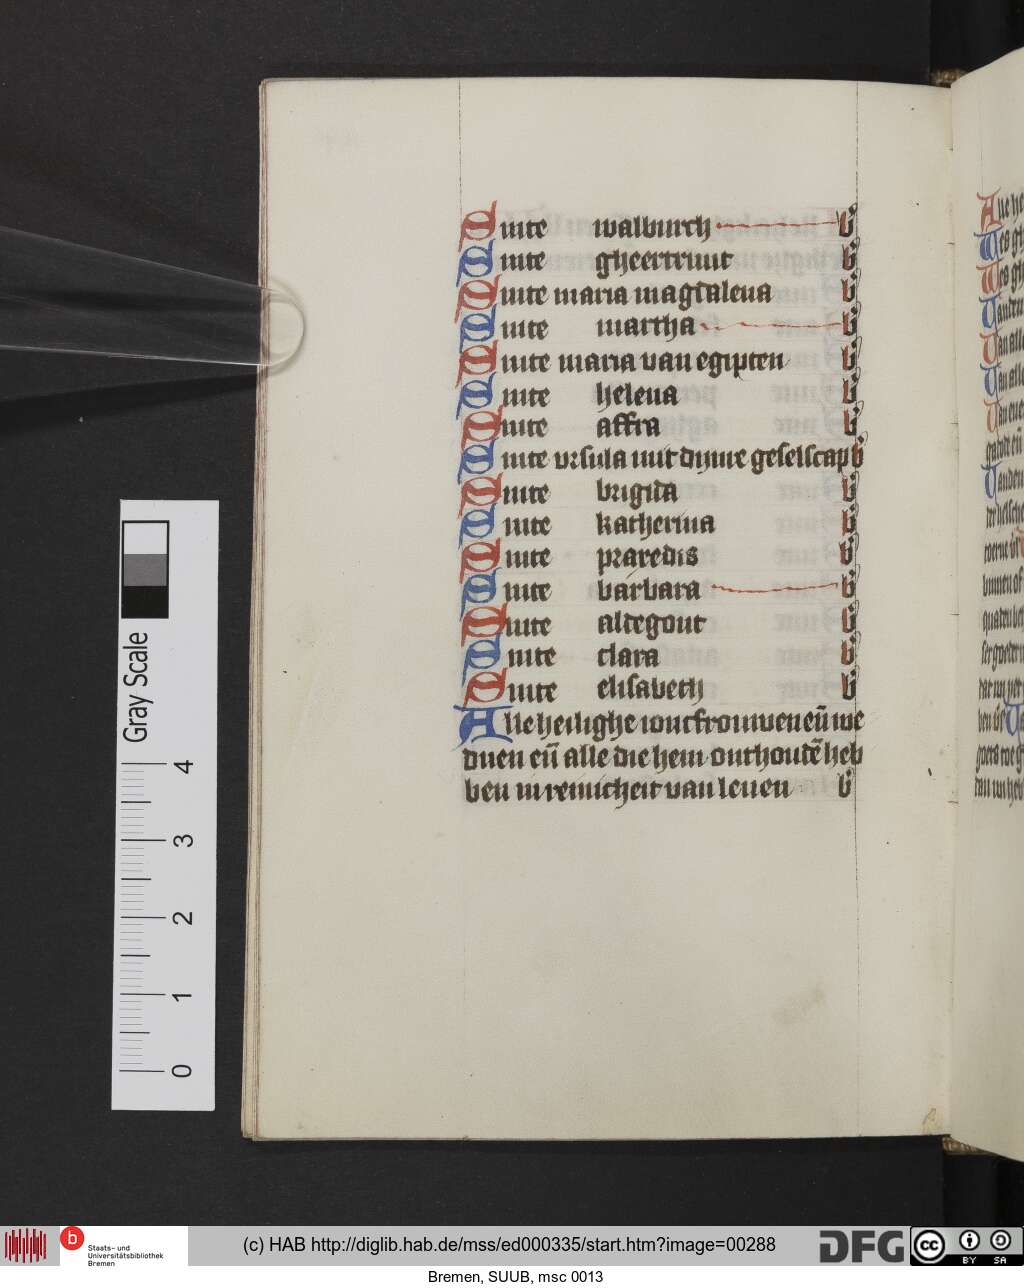 Sinte walburch b
Sinte gheertruut b
Sinte maria magdalena b
Sinte martha b
Sinte maria van egipten b
Sinte helena b
Sinte affra b
Sinte vrsula mit dijnre geselscap b
Sinte brigida b
Sinte katherina b
Sinte praxedis b
Sinte barbara b
Sinte aldegont b
Sinte clara b
Sinte elisabeth b
Alle heilighe ioncfrouwen eñ we
duen eñ alle die hem onthoudē heb
ben in reinicheit van leuen b
Gray Scale
4
3
2
1
0
b Staats- und
Universitätsbibliothek
Bremen
(c) HAB http://diglib.hab.de/mss/ed000335/start.htm?image=00288
DFG
cc BY SA
Bremen, SUUB, msc 0013